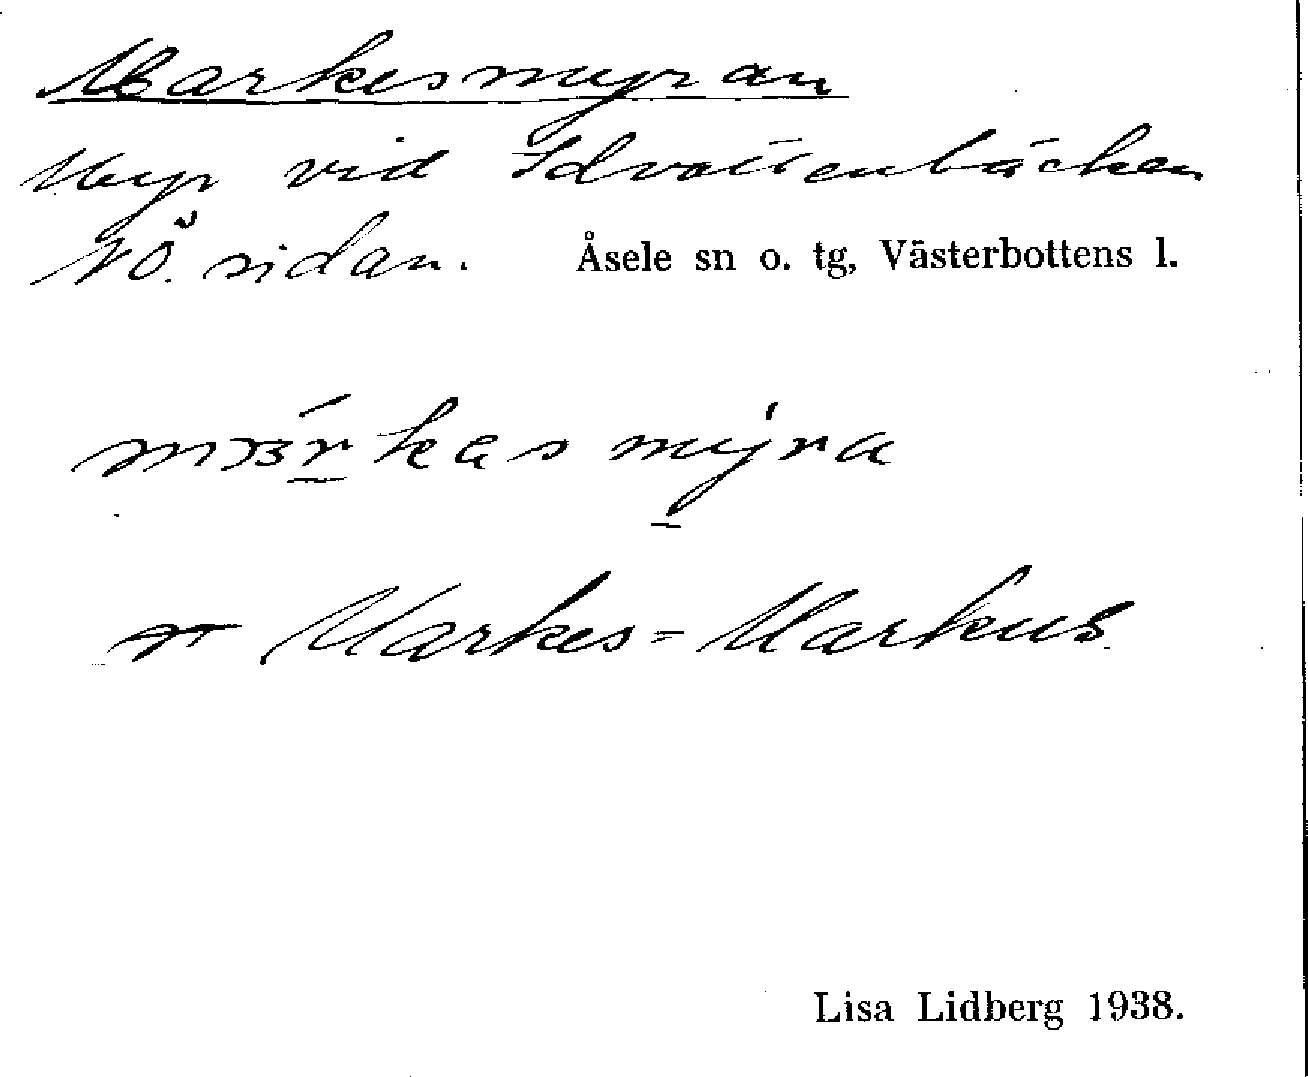 Markesmyran
Myr vid Idvattenbäcken
NÖ. sidan. Åsele sn o. tg, Västerbottens l.
myra
Markes = Markus
Lisa Lidberg 1938.